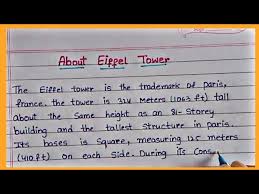 About Eiffel Tower
The Eiffel tower is the trademark of paris,
france. the tower is 324 meters (1063 ft) tall
about the same height as an 81- Storey
building and the tallest structure in paris.
Its bases is Square, measuring 125 meters
(410 ft) on each Side. During its Cons